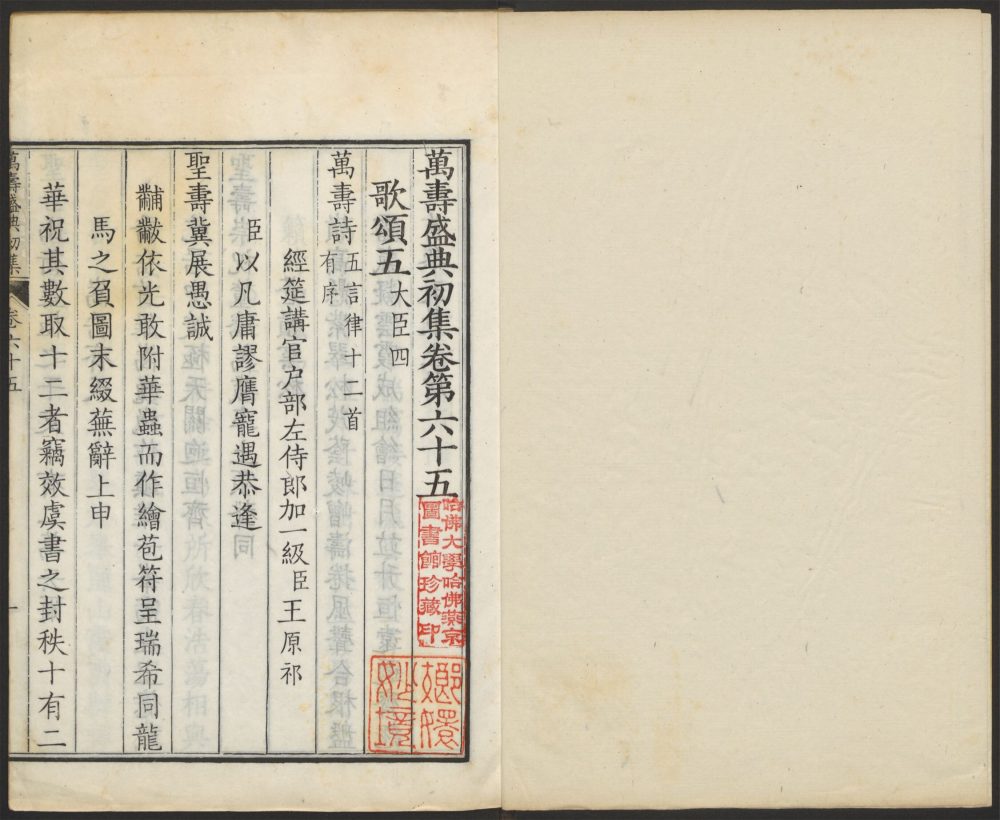 萬壽盛典初集卷第六十五
歌頌五 大臣四
萬壽詩 五言律十二首
有序
經筵講官户部左侍郎加一級臣王原祁
臣以凡庸謬膺寵遇恭逢
聖壽冀展愚誠
黼黻依光敢附華蟲而作繪苞符呈瑞希同龍
馬之負圖末綴蕪辭上申
華祝其數取十二者竊效虞書之封秩十有二
萬壽盛典初集 卷六十五 一
哈佛大學哈佛燕京
圖書館珍藏印
嫏嬛
妙境